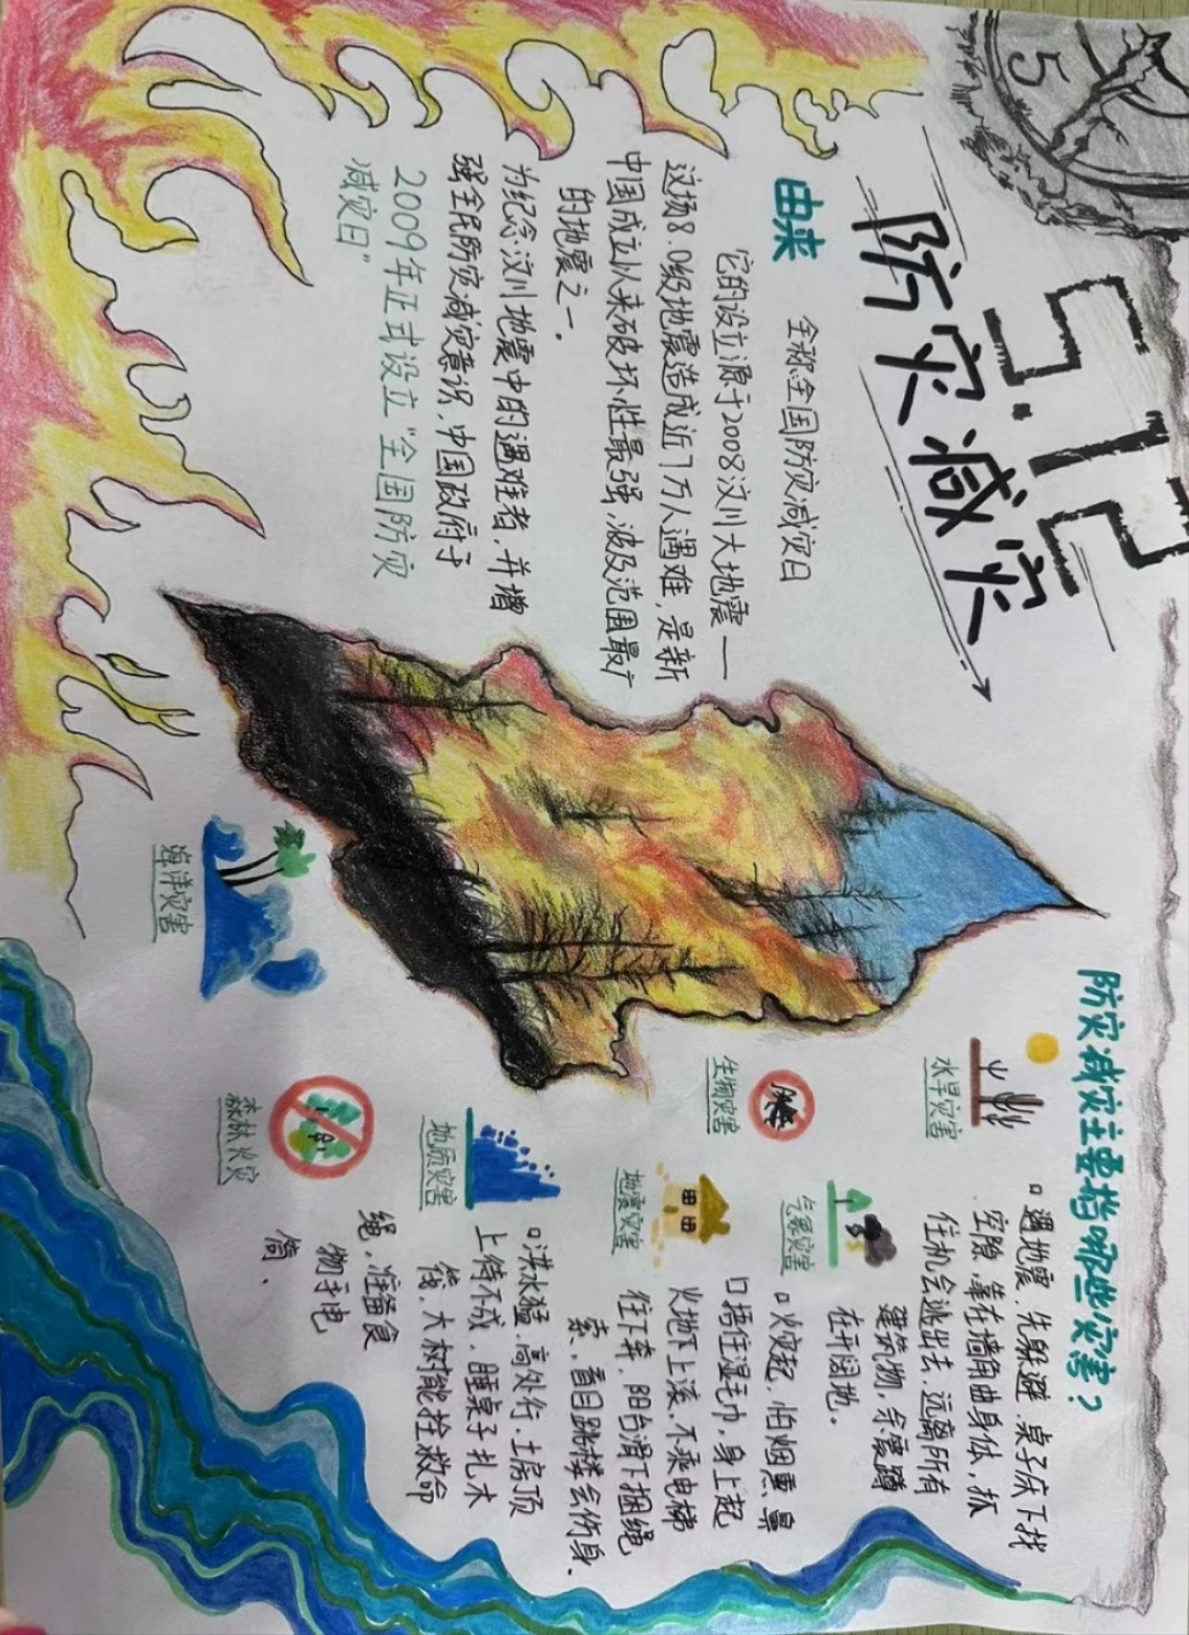 5
5.12
防灾减灾
由来
全称全国防灾减灾日
它的设立源于2008汶川大地震——
这场8.0级地震造成近7万人遇难,是新
中国成立以来破坏性最强,波及范围最广
的地震之一.
为纪念汶川地震中的遇难者,并增
强全民防灾减灾意识,中国政府于
2009年正式设立"全国防灾
减灾日"
防灾减灾主要指哪些灾害?
水旱灾害
气象灾害
生物灾害
地震灾害
地质灾害
森林火灾
海洋灾害
遇地震,先躲避,桌子床下找
空隙,靠在墙角曲身体,抓
住机会逃出去,远离所有
建筑物,余震蹲
在开阔地.
火灾起,怕烟熏,鼻
捂住湿毛巾,身上起
火地下上滚,不乘电梯
往下奔,阳台滑下捆绳
索,盲目跳楼会伤身.
洪水猛,高处行,土房顶
上待不成,睡桌子扎木
筏,大树能拴救命
绳,准备食
物手电
筒.